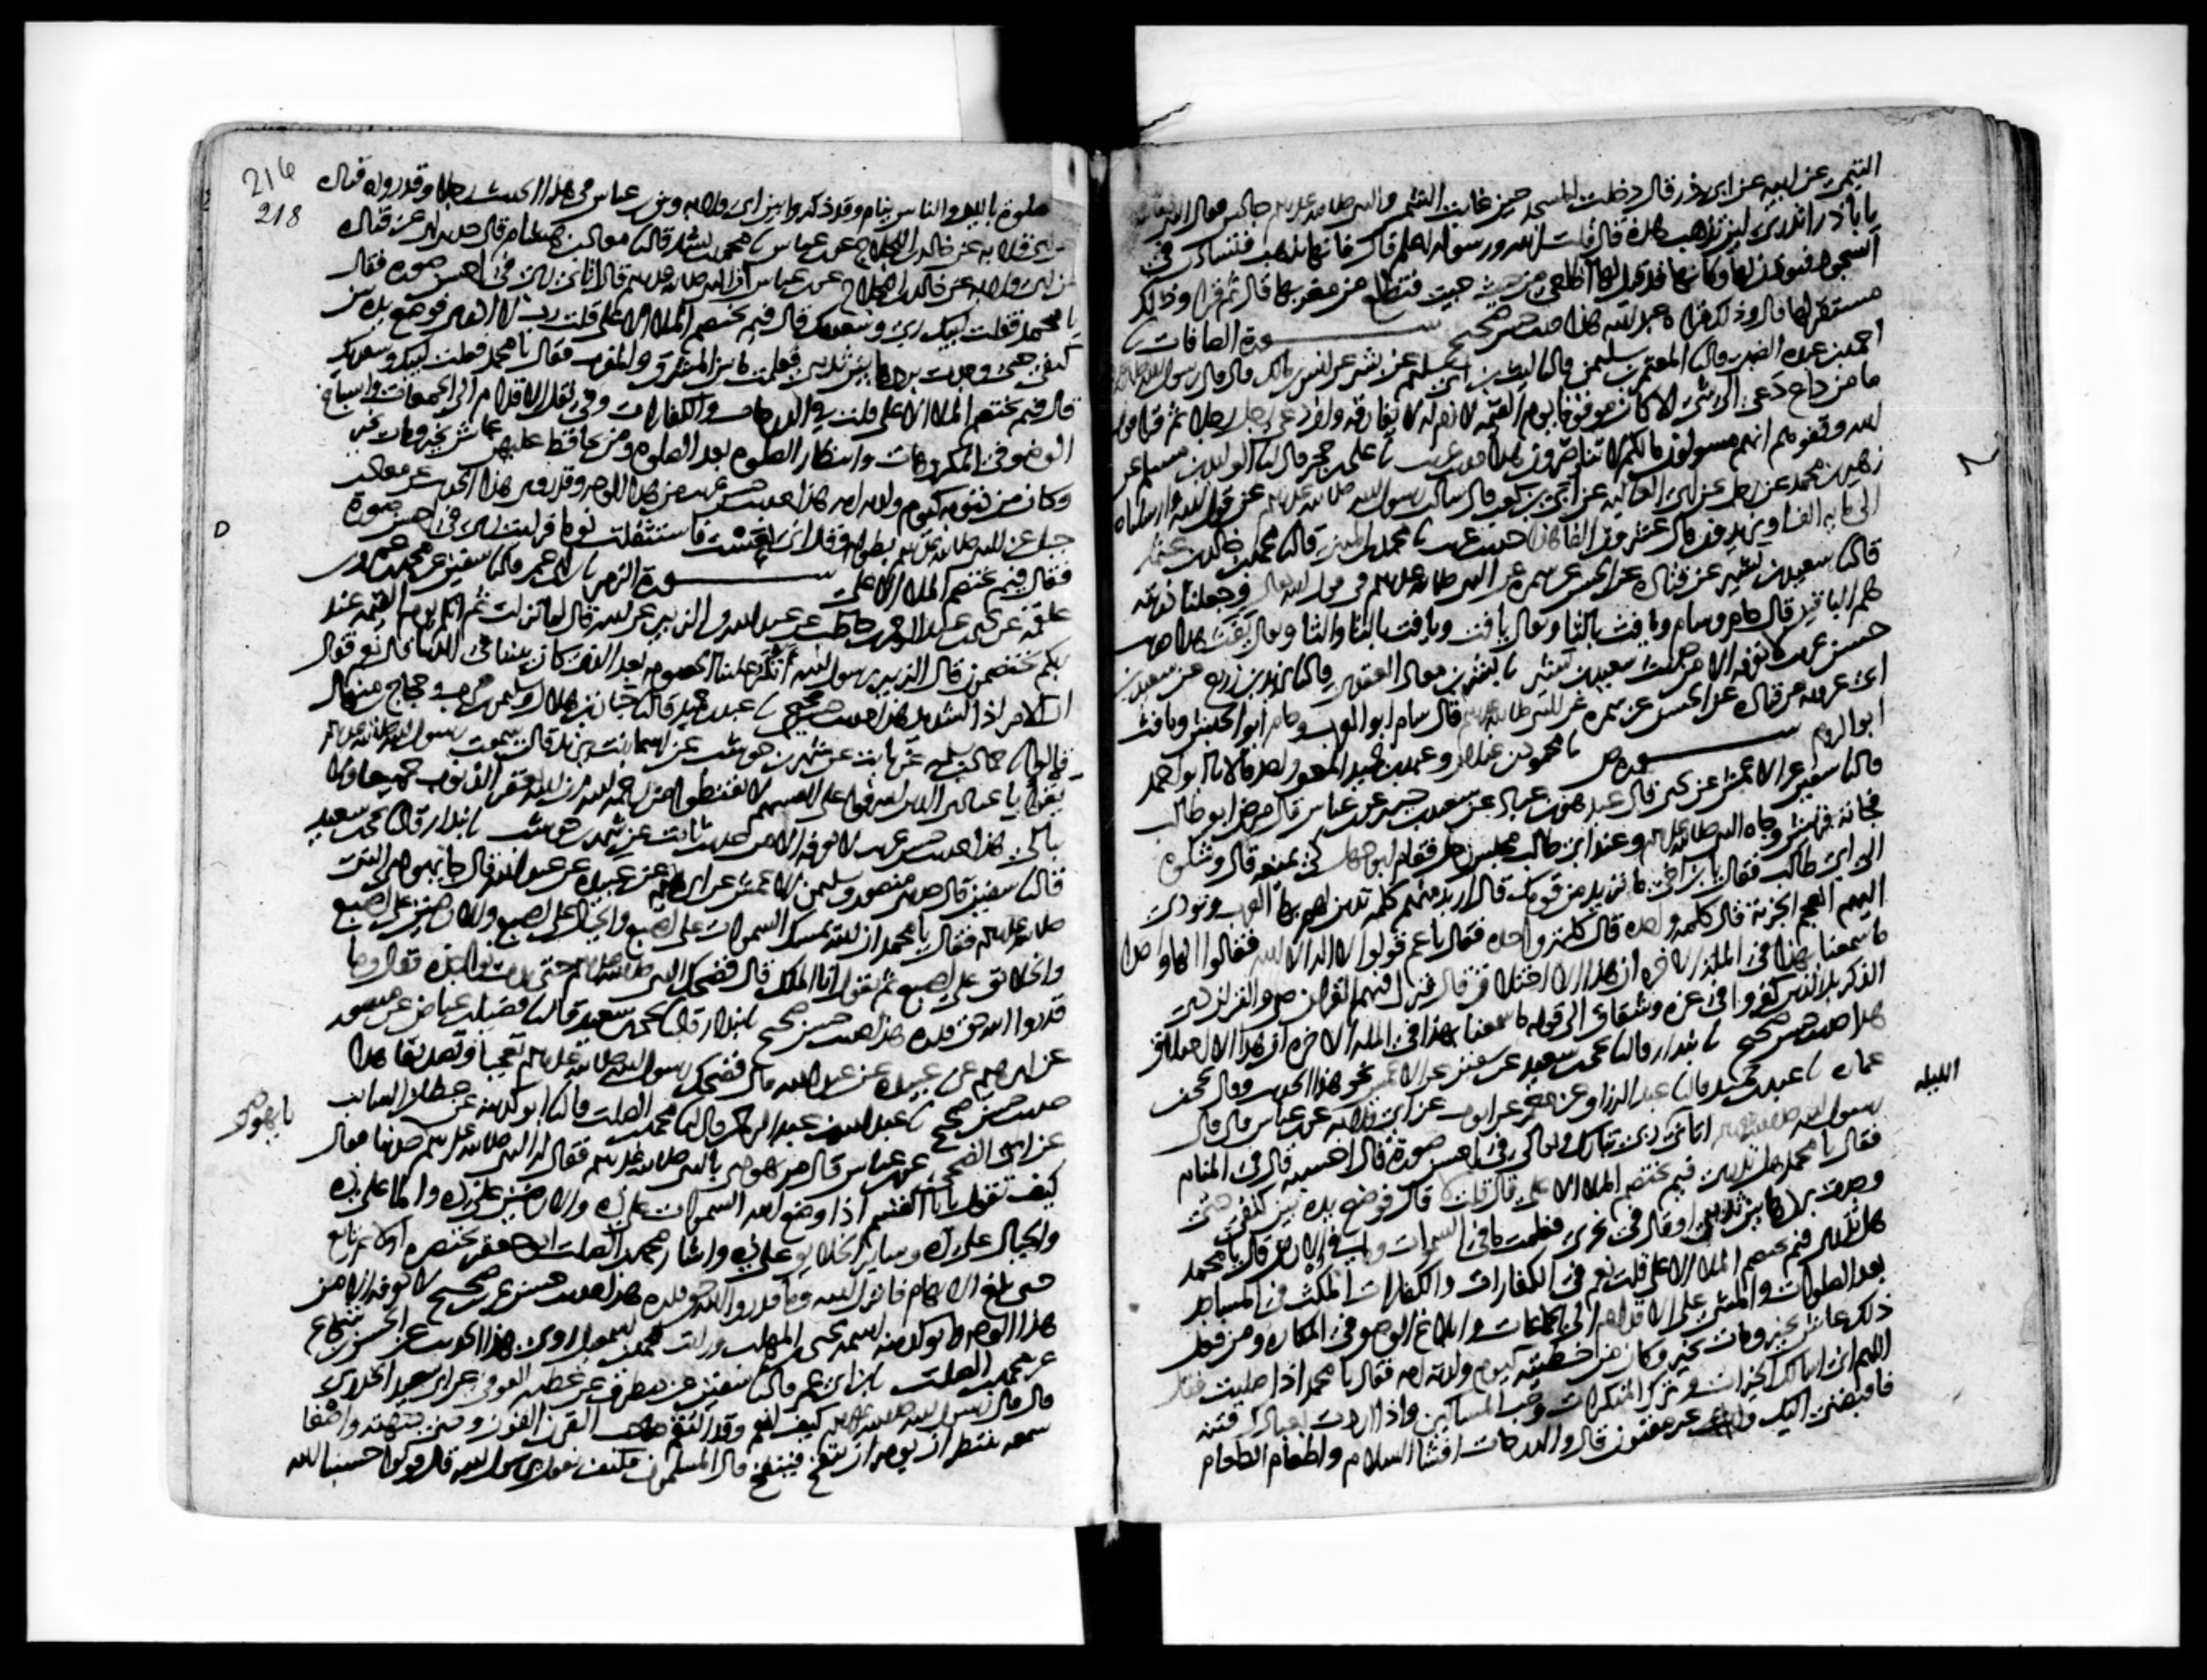 التيمي عن ابيه عن ابي ذر قال دخلت المسجد حين غابت الشمس والنبي صلى الله عليه جالس فقال النبي
يا با ذر اتدري اين تذهب هذه قال قلت الله ورسوله اعلم قال فانها تذهب فتستاذن في
السجود فيوذن لها وكانها قد قيل لها اطلعي من حيث جيت فتطلع من مغربها قال ثم قرا وذلك
مستقر لها قال وذلك قراه عبد الله هذا حديث حسن صحيح سورة الصافات
احمد بن عبده الضبي قال المعتمر بن سليمن قال ليث بن ابي سليم عن بشر عن انس بن مالك قال قال رسول الله
ما من داع دعى الى شي الا كان موقوفا يوم القيمه لازم له لا يفارقه وان دعى رجل رجلا ثم قرا قول
الله وقفوهم انهم مسولون مالكم لا تناصرون هذا حديث غريب علي بن حجر قال الوليد بن مسلم عن
زهير بن محمد عن رجل عن ابي العاليه عن ابي بن كعب قال سالت رسول الله صلى الله عليه عن قول الله وارسلناه
الى مايه الف او يزيدون قال عشرون الفا هذا حديث غريب محمد بن المثنى قال محمد بن خالد بن عثمه
قال سعيد بن بشير عن قتاده عن الحسن عن سمره عن النبي صلى الله عليه في قول الله وجعلنا ذريته
هم الباقين قال حام وسام ويافث بالثا ويقال يافت ويافث بالتا والثا ويقال يفث هذا حديث
حسن غريب لا نعرفه الا من حديث سعيد بن بشير بشر بن معاذ العقدي قال يزيد بن زريع عن سعيد بن
ابي عروبه عن قتاده عن الحسن عن سمره عن النبي صلى الله عليه قال سام ابو العرب وحام ابو الحبش ويافث
ابو الروم سورة ص محمود بن غيلان وعبد بن حميد المعنى واحد قالا ابو احمد
قال سفين عن الاعمش عن يحيى قال عبد هو بن عباد عن سعيد بن جبير عن بن عباس قال مرض ابو طالب
فجاته قريش وجاه النبي صلى الله عليه وعند ابي طالب مجلس رجل فقام ابو جهل كي يمنعه قال وشكوه
الى ابي طالب فقال يا بن اخي ما تريد من قومك قال اريد منهم كلمه تدين لهم بها العرب وتودي
اليهم العجم الجزية قال كلمه واحده قال كلمة واحده فقال يا عم قولوا لا اله الا الله فقالوا الها واحدا
ما سمعنا بهذا في المله الاخره ان هذا الا اختلاق قال فنزل فيهم القران ص والقران ذي
الذكر بل الذين كفروا في عزه وشقاق الى قوله ما سمعنا بهذا في المله الاخره ان هذا الا اختلاق
هذا حديث حسن صحيح بندار قال يحيى بن سعيد عن سفين عن الاعمش نحو هذا الحديث وقال يحيى
عماره عبد بن حميد قال عبد الرزاق عن معمر عن ايوب عن ابي قلابه عن بن عباس قال قال
الليله
رسول الله صلى الله عليه اتاني ربي تبارك وتعالى في احسن صورة قال احسبه قال في المنام
فقال يا محمد هل تدري فيم يختصم الملا الاعلى قال قلت لا قال فوضع يده بين كتفي حتى
وجدت بردها بين ثديي او قال في نحري فعلمت ما في السموات وما في الارض قال يا محمد
هل تدري فيم يختصم الملا الاعلى قلت نعم في الكفارات والكفارات المكث في المساجد
بعد الصلوات والمشي على الاقدام الى الجماعات وابلاغ الوضو في المكاره ومن فعل
ذلك عاش بخير ومات بخير وكان من خطيته كيوم ولدته امه فقال يا محمد اذا صليت فقل
اللهم اني اسالك الخيرات وترك المنكرات وحب المساكين واذا اردت بعبادك فتنه
فاقبضني اليك غير مفتون قال والدرجات افشا السلام واطعام الطعام
216
218
صلوة بالليل والناس نيام وقد ذكروا بين ابي قلابه وبين بن عباس في هذا الحديث رجلا وقد رواه قتاده
عن ابي قلابه عن خالد بن اللجلاج عن بن عباس محمد بن بشار قال معاذ بن هشام قال حدثني ابي عن قتاده
عن ابي قلابه عن خالد بن اللجلاج عن بن عباس ان النبي صلى الله عليه قال اتاني ربي في احسن صوره فقال
يا محمد فقلت لبيك ربي وسعديك قال فيم يختصم الملا الاعلى قلت رب لا ادري فوضع يده بين
كتفي حتى وجدت بردها بين ثديي فعلمت ما بين المشرق والمغرب فقال يا محمد فقلت لبيك وسعديك
قال فيم يختصم الملا الاعلى قلت في الدرجات والكفارات وفي نقل الاقدام الى الجمعات واسباغ
الوضو في المكروهات وانتظار الصلوة بعد الصلوة ومن يحافظ عليهن عاش بخير ومات بخير
وكان من ذنوبه كيوم ولدته امه هذا حديث حسن غريب من هذا الوجه وقد روي هذا الحديث عن معاذ بن
جبل عن النبي صلى الله عليه بطوله وقال اني نعست فاستثقلت نوما فرايت ربي في احسن صورة
فقال فيم يختصم الملا الاعلى سورة الزمر بن ابي عمر قال سفين عن محمد بن عمرو بن
علقمه عن يحيى بن عبد الرحمن بن حاطب عن عبد الله بن الزبير عن ابيه قال لما نزلت ثم انكم يوم القيمه عند
ربكم تختصمون قال الزبير يا رسول الله اتكرر علينا الخصومه بعد الذي كان بيننا في الدنيا قال نعم فقال
ان الامر اذا لشديد هذا حديث حسن صحيح عبد بن حميد قال حبان بن هلال وسليمن بن حرب وحجاج بن منهال
قالوا حماد بن سلمه عن ثابت عن شهر بن حوشب عن اسما بنت يزيد قالت سمعت رسول الله صلى الله عليه
يقول يا عبادي الذين اسرفوا على انفسهم لا تقنطوا من رحمة الله ان الله يغفر الذنوب جميعا ولا
يبالي هذا حديث حسن غريب لا نعرفه الا من حديث ثابت عن شهر بن حوشب بندار قال يحيى بن سعيد
قال سفين قال حدثني منصور وسليمن الاعمش عن ابراهيم عن عبيده عن عبد الله قال جا يهودي الى النبي
صلى الله عليه فقال يا محمد ان الله يمسك السموات على اصبع والجبال على اصبع والارضين على اصبع
والخلايق على اصبع ثم يقول انا الملك قال فضحك النبي صلى الله عليه حتى بدت نواجذه فقال وما
قدروا الله حق قدره هذا حديث حسن صحيح بندار قال يحيى بن سعيد قال فضيل بن عياض عن منصور
عن ابراهيم عن عبيده عن عبد الله قال فضحك رسول الله صلى الله عليه تعجبا وتصديقا هذا
حديث حسن صحيح عبد الله بن عبد الرحمن قال محمد بن الصلت قال ابو كدينه عن عطا بن السايب
يا يهودي
عن ابي الضحى عن بن عباس قال مر يهودي بالنبي صلى الله عليه فقال له النبي صلى الله عليه حدثنا فقال
كيف تقول يا با القسم اذا وضع الله السموات على ذه والارضين على ذه والما على ذه
والجبال على ذه وساير الخلايق على ذه واشار محمد بن الصلت بخنصره اولا ثم تابع
حتى بلغ الابهام فانزل الله وما قدروا الله حق قدره هذا حديث حسن غريب صحيح لا نعرفه الا من
هذا الوجه وابو كدينه اسمه يحيى بن المهلب ورايت محمد بن اسمعيل روى هذا الحديث عن الحسن بن شجاع
عن محمد بن الصلت بن ابي عمر قال سفين عن مطرف عن عطيه العوفي عن ابي سعيد الخدري
قال قال رسول الله صلى الله عليه كيف انعم وقد التقم صاحب القرن القرن وحنى جبهته واصغا
سمعه ينتظر ان يومر ان ينفخ فينفخ قال المسلمون فكيف نقول يا رسول الله قال قولوا حسبنا الله